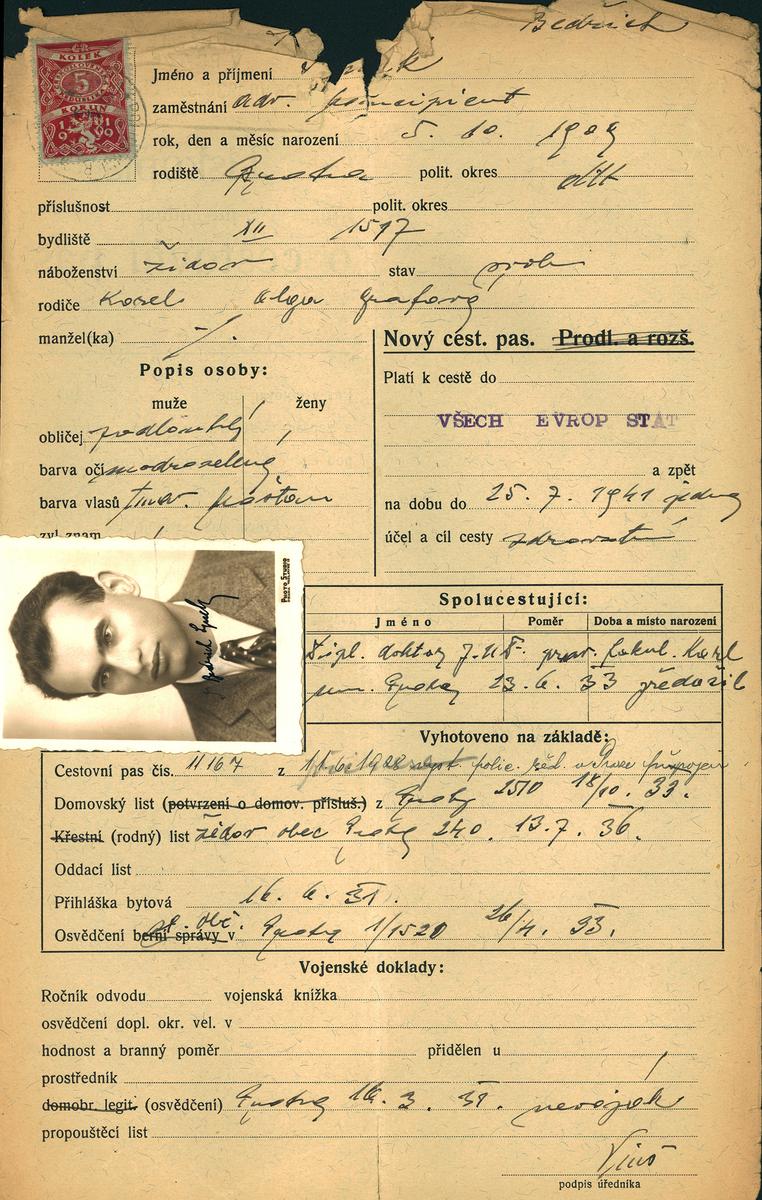 Bedřich
KOLEK
5
KORUN
Jméno a příjmení
zaměstnání adv. koncipient
rok, den a měsíc narození 5. 10. 1909
rodiště Praha polit. okres dtt
příslušnost polit. okres
bydliště XII 1597
náboženství židov stav svob
rodiče Karel Olga Grafová
manžel(ka) -/.
Nový cest. pas. Prodl. a rozš.
Popis osoby:
Platí k cestě do
muže ženy
VŠECH EVROP STÁT
obličej podlouhlý
barva očí modrozelené
a zpět
barva vlasů tmav. kaštan
na dobu do 25. 7. 1941
účel a cíl cesty zdravotní
zvl. znam.
PHOTO STUDIO
Spolucestující:
Jméno Poměr Doba a místo narození
Dipl. doktor práv. fakul. Karl
Praha 23. 6. 33 předložil
Vyhotoveno na základě:
Cestovní pas čís. 11167 z polic. řed. v Praze připojen
Domovský list (potvrzení o domov. přísluš.) z Prahy 2510 18/10. 33.
Křestní (rodný) list židov obec Praha 240. 13.7. 36.
Oddací list
Přihláška bytová 16. 6. 31.
Osvědčení berní správy v st. obč. Praha 1/1520 26/4. 33.
Vojenské doklady:
Ročník odvodu vojenská knížka
osvědčení dopl. okr. vel. v
hodnost a branný poměr přidělen u
prostředník
domobr. legit. (osvědčení) Praha 16. 3. 31. nevoják
propouštěcí list
podpis úředníka